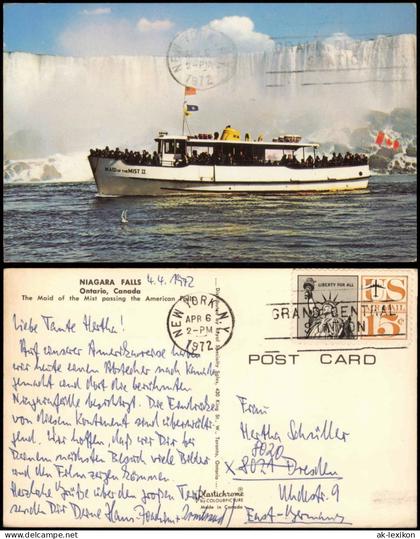 NEW YORK, N.Y.
2-PM
1972
GRAND CENTRAL
STATION
MAID OF THE MIST II
NIAGARA FALLS
Ontario, Canada
4.4.1972
The Maid of the Mist passing the American Falls.
Liebe Tante Hertha!
Auf unserer Amerikareise haben
wir heute einen Abstecher nach Kanada
gemacht und dort die berühmten
Niagarafälle besichtigt. Die Eindrücke
von diesem Kontinent sind überwälti-
gend. Wir hoffen, daß wir Dir bei
Deinem nächsten Besuch viele Bilder
und den Film zeigen können.
Herzliche Grüße über den großen Teich
senden Dir Deine Hans-Joachim
NEW YORK, N.Y.
APR 6
2-PM
1972
LIBERTY FOR ALL
US
AIR MAIL
15¢
GRAND CENTRAL
STATION
POST CARD
Frau
Hertha Schüller
8020
X 8021 Dresden
Uhdestr. 9
East-Germany
Plastichrome
by COLOURPICTURE
Made in Canada
© ak-lexikon.com